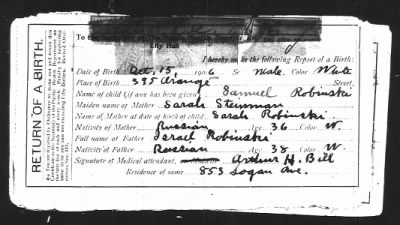 RETURN OF A BIRTH.
To the
City Hall
I hereby make the following Report of a Birth:
Date of Birth Oct. 15 1906 Sex Male. Color White
Place of Birth 395 Orange Street
Name of child (if any has been given) Samuel Robinski
Maiden name of Mother Sarah Steinman
Name of Mother at date of birth of child Sarah Robinski
Nativity of Mother Russian Age 36 Color W.
Full name of Father Israel Robinski
Nativity of Father Russian Age 38 Color W.
Signature of Medical attendant, Arthur H. Bill
Residence of same 853 Logan Ave.